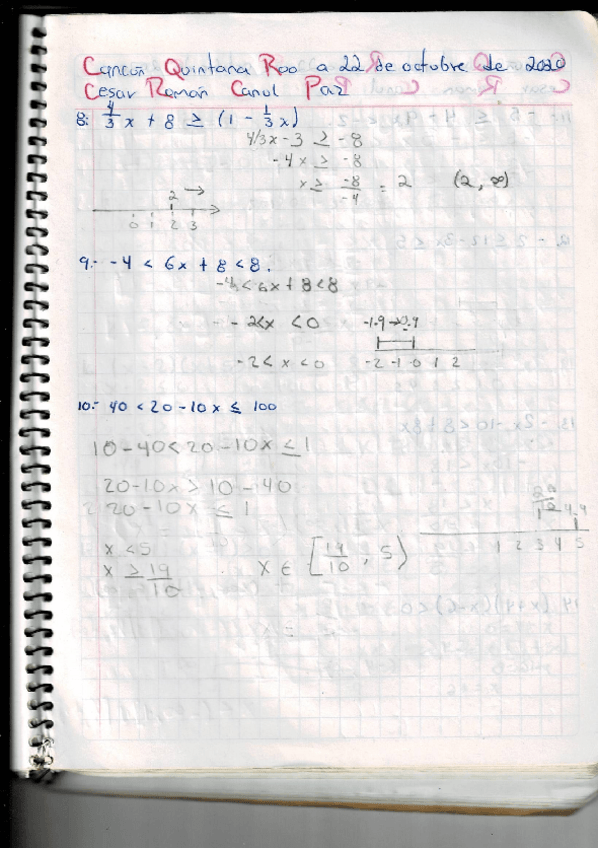 Cancún Quintana Roo a 22 de octubre de 2020
Cesar Ramón Canul Paz
8: 4/3 x + 8 ≥ (1 - 1/3 x)
4/3x - 3 ≥ -8
-4x ≥ -8
x ≥ -8/-4 = 2 (2, ∞)
2 →
0 1 2 3
9.- -4 < 6x + 8 < 8.
-4 < 6x + 8 < 8
-2<x <0
-1.9→0.9
-2 < x < 0
-2 -1 0 1 2
10.- 40 < 20 - 10x ≤ 100
10-40<20-10x≤1
20-10x > 10-40
20-10x ≤ 1
4.9
1 2 3 4 5
x < 5
x ≥ 19/10
x ∈ [19/10, 5)